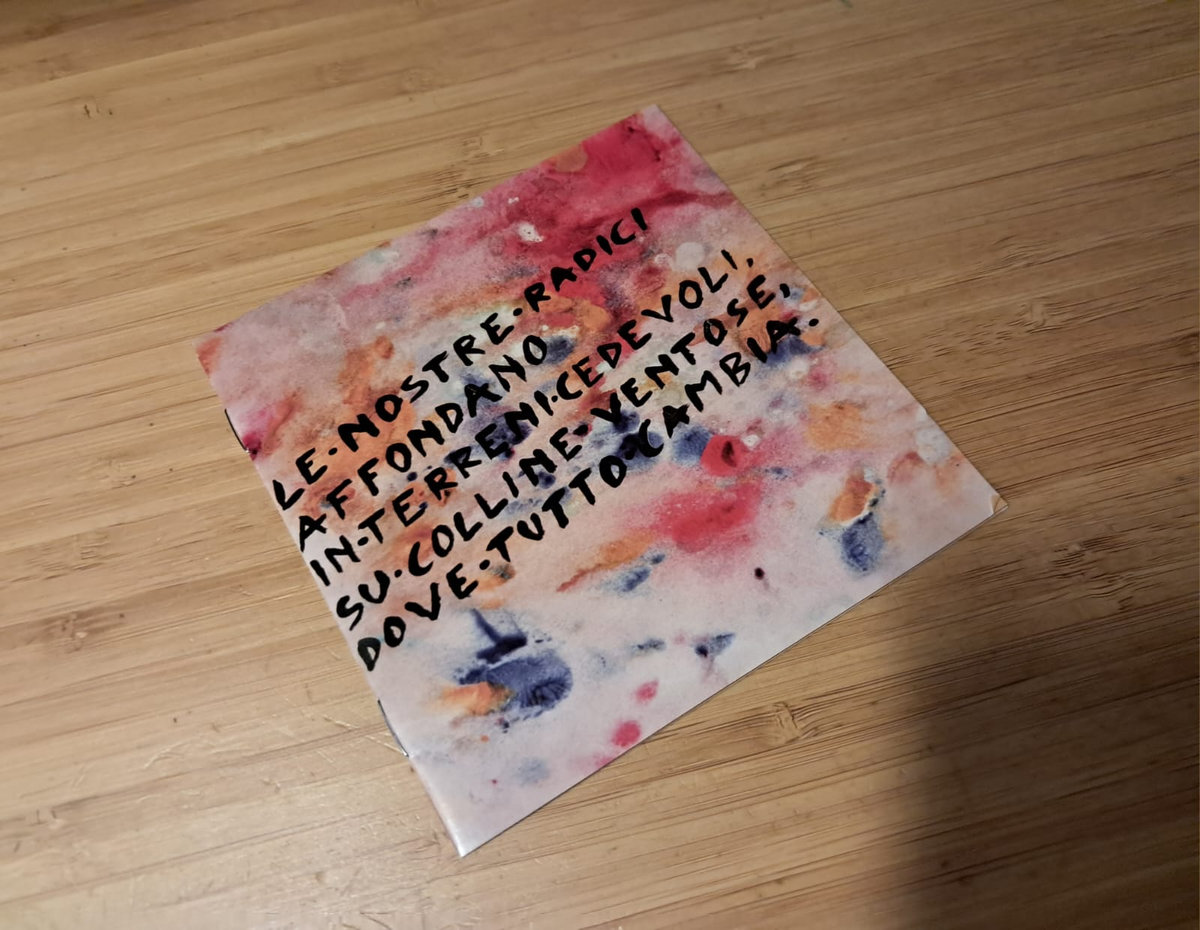 LE·NOSTRE·RADICI
AFFONDANO
IN·TERRENI·CEDEVOLI,
SU·COLLINE·VENTOSE,
DOVE·TUTTO·CAMBIA.